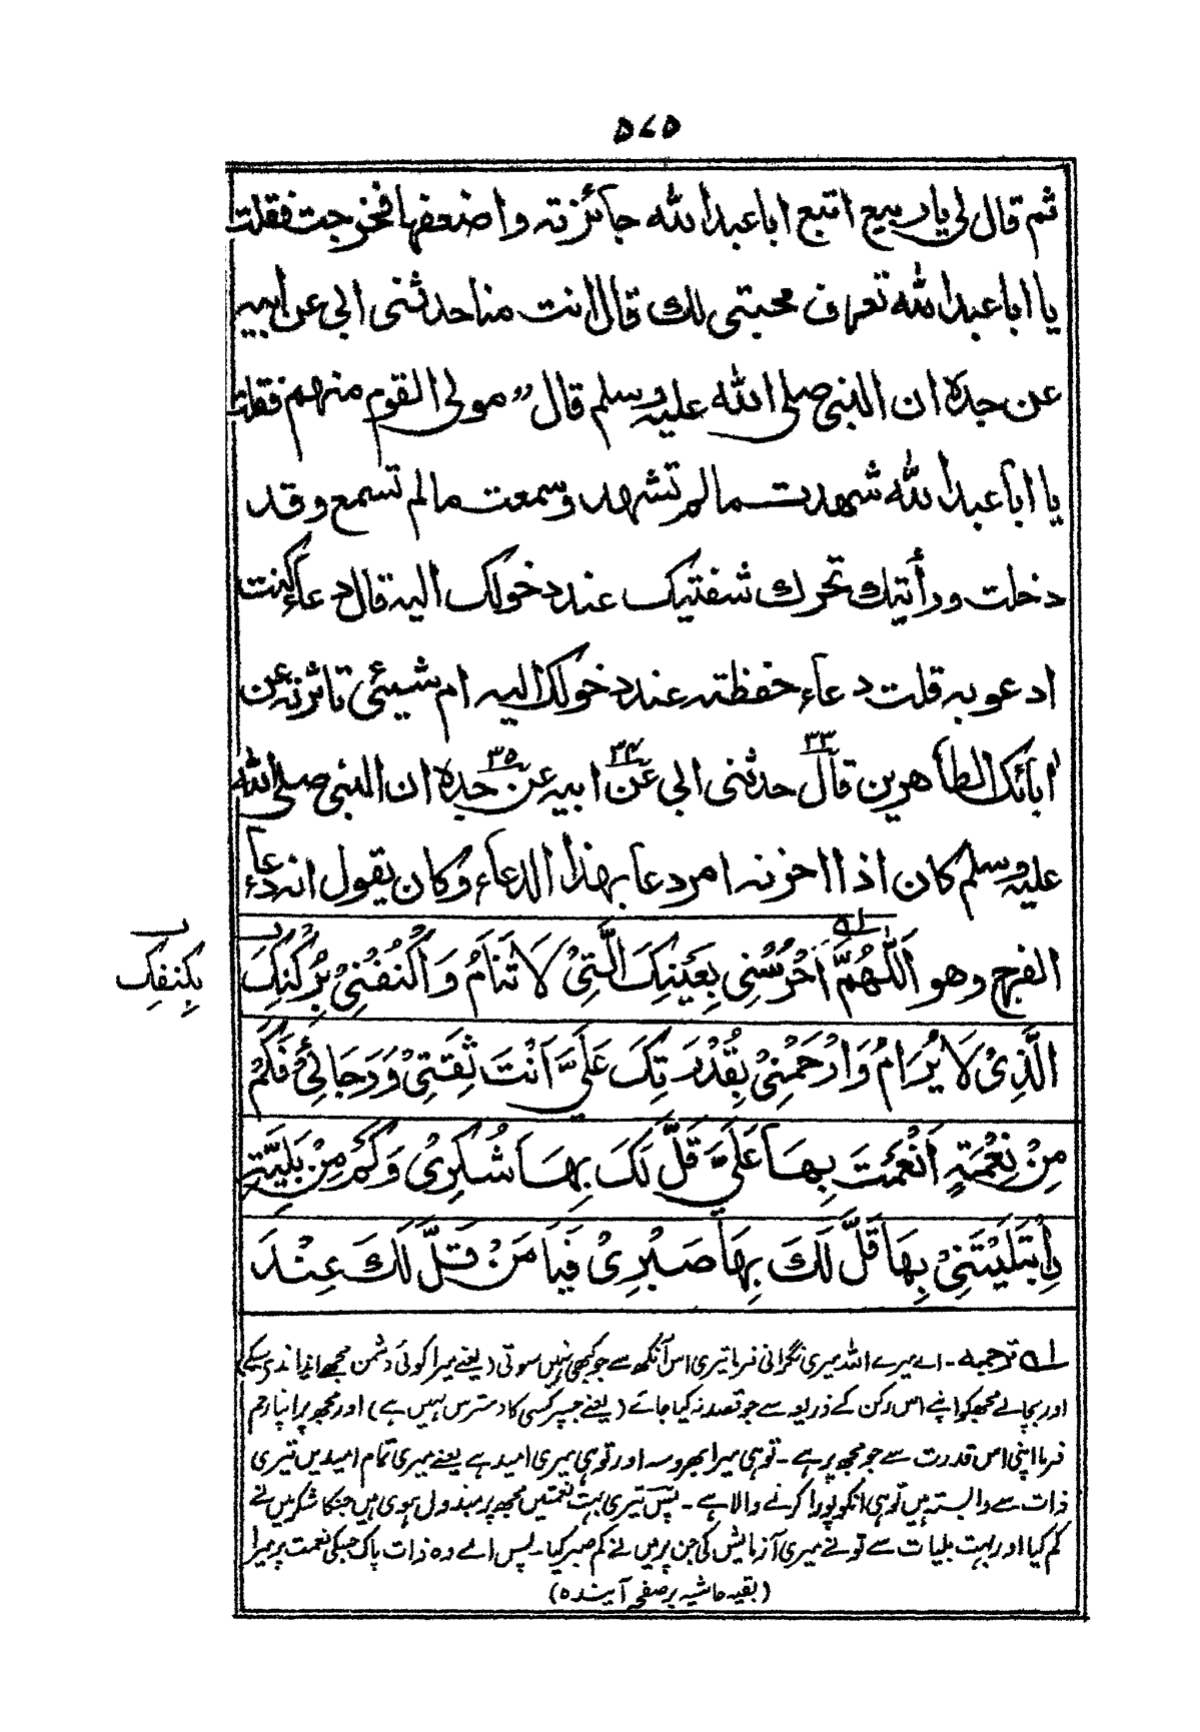 ۵۷۵
ثم قال لی یا ربیع اتبع ابا عبد الله جائزته واضعفها فخرجت فقلت
یا ابا عبد الله تعرف محبتی لك قال انت منا حدثنی ابی عن ابیه
عن جده ان النبی صلی الله علیه وسلم قال ,, مولی القوم منهم فقلت
یا ابا عبد الله شهدت مالم تشهد وسمعت مالم تسمع وقد
دخلت ورأیتك تحرك شفتیك عند دخولك الیه قال دعاء کنت
ادعو به قلت دعاء حفظته عند دخولك الیه ام شیئی تاثرته عن
ابائك الطاهرین قال۳۳ حدثنی ابی عن۳۴ ابیه عن۳۵ جده ان النبی صلی الله
علیه وسلم کان اذا احزنه امر دعا بهذا الدعاء وکان یقول انه دعاء
الفرج وهو اَللّٰهُمَّ اَحْرُسْنِی بِعَیْنِكَ الَّتِیْ لَا تَنَامُ وَاکْنُفْنِیْ بِرُکْنِكَ
بکنفك
الَّذِیْ لَا یُرَامُ وَارْحَمْنِیْ بِقُدْرَتِكَ عَلَیَّ اَنْتَ ثِقَتِیْ وَرَجَائِیْ فَکَمْ
مِنْ نِعْمَةٍ اَنْعَمْتَ بِهَا عَلَیَّ قَلَّ لَكَ بِهَا شُکْرِیْ وَکَمْ مِنْ بَلِیَّةٍ
اِبْتَلَیْتَنِیْ بِهَا قَلَّ لَكَ بِهَا صَبْرِیْ فَیَا مَنْ قَلَّ لَكَ عِنْدَ
لہ ترجمہ ۔ اے میرے اللہ میری نگرانی فرما تیری اس آنکھ سے جو کبھی نہیں سوتی (یعنے میرا کوئی دشمن مجھے ایذا نہ دی سکے)
اور بچالے مجھکو اپنے اس رکن کے ذریعہ سے جو قصد نہ کیا جائے (یعنے جسپر کسی کا دسترس نہیں ہے) اور مجھ پر اپنا رحم
فرما اپنی اس قدرت سے جو مجھ پر ہے ۔ تو ہی میرا بھروسہ اور تو ہی میری امید ہے یعنے میری تمام امیدیں تیری
ذات سے وابستہ ہیں تو ہی انکو پورا کرنے والا ہے ۔ پس تیری بہت نعمتیں مجھ پر مبذول ہوی ہیں جنکا شکر میں نے
کم کیا اور بہت بلیات سے تو نے میری آزمایش کی جن پر میں نے کم صبر کیا ۔ پس اے وہ ذات پاک جسکی نعمت پر میرا
(بقیہ حاشیہ بر صفحہ آیندہ)